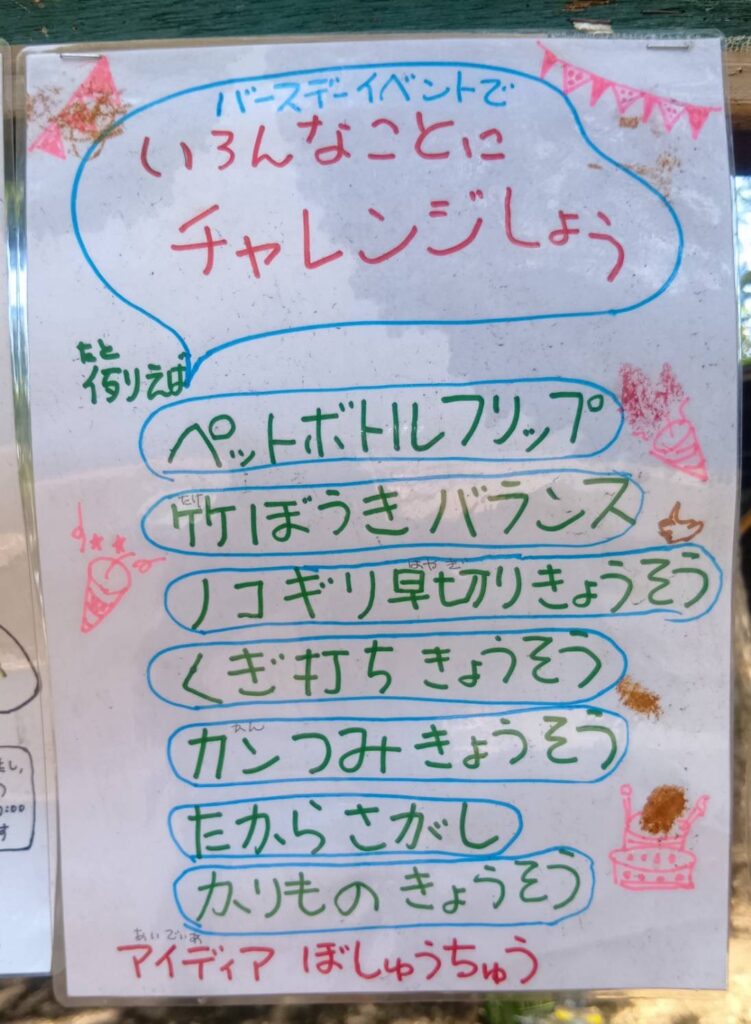 バースデーイベントで
いろんなことに
チャレンジしよう
たと
例えば
ペットボトルフリップ
たけ
竹ぼうき バランス
はやぎ
ノコギリ早切りきょうそう
くぎ打ち きょうそう
かん
カンつみ きょうそう
たから さがし
かりもの きょうそう
あいでぃあ
アイディア ぼしゅうちゅう